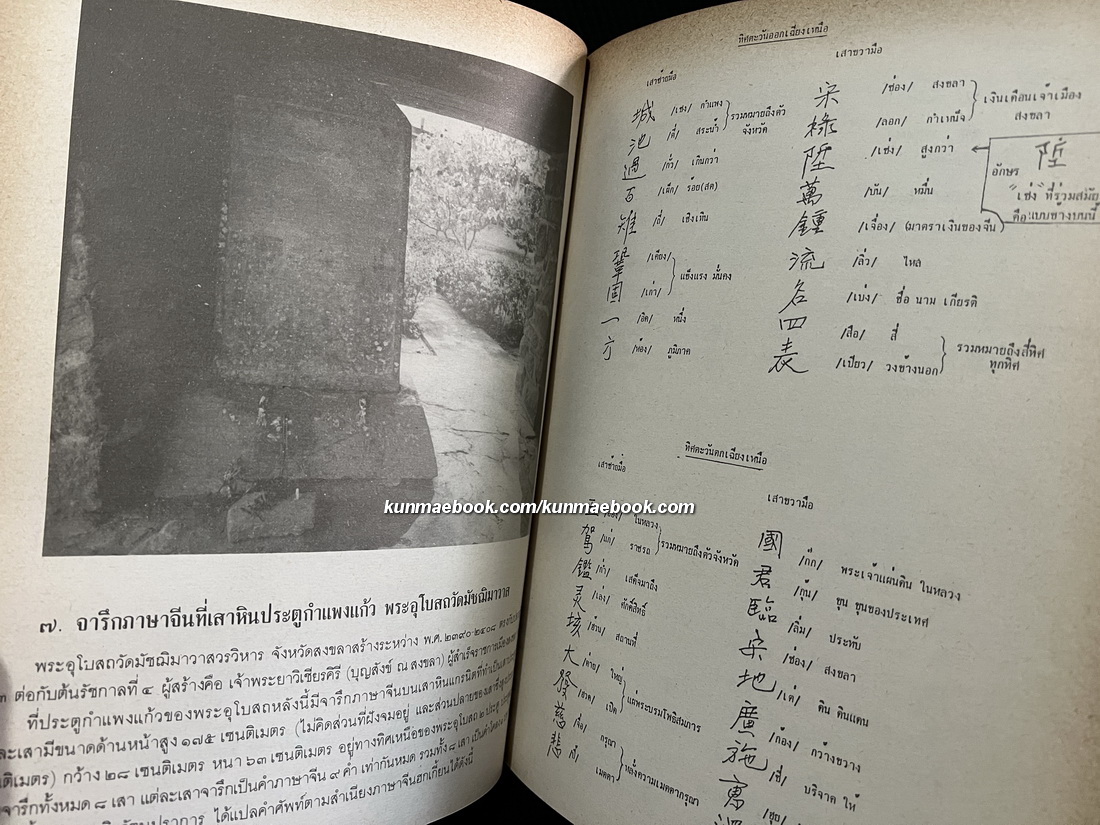 ๗. จารึกภาษาจีนที่เสาหินประตูกำแพงแก้ว พระอุโบสถวัดมัชฌิมาวาส
พระอุโบสถวัดมัชฌิมาวาสวรวิหาร จังหวัดสงขลาสร้างระหว่าง พ.ศ. ๒๓๙๐-๒๔๐๘
๓ ต่อกับต้นรัชกาลที่ ๔ ผู้สร้างคือ เจ้าพระยาวิเชียรคิรี (บุญสังข์ ณ สงขลา) ผู้สำเร็จราชการเมือง
ที่ประตูกำแพงแก้วของพระอุโบสถหลังนี้มีจารึกภาษาจีนบนเสาหินแกรนิตที่ทำเป็นเสา
ละเสามีขนาดด้านหน้าสูง ๑๗๕ เซนติเมตร (ไม่คิดส่วนที่ฝังจมอยู่ และส่วนปลายของเสา
ติเมตร) กว้าง ๒๘ เซนติเมตร หนา ๖๓ เซนติเมตร อยู่ทางทิศเหนือของพระอุโบสถ ๒ ประตู
จารึกทั้งหมด ๘ เสา แต่ละเสาจารึกเป็นคำภาษาจีน ๙ คำ เท่ากันหมด รวมทั้ง ๘ เสา เป็นคำ
ได้แปลคำศัพท์ตามสำเนียงภาษาจีนฮกเกี้ยนได้ดังนี้
ทิศตะวันออกเฉียงเหนือ
เสาซ้ายมือ
城 /เซง/ กำแพง
池 /ตี๋/ สระน้ำ
รวมหมายถึงตัวจังหวัด
過 /กั้ว/ เกินกว่า
百 /เผ็ก/ ร้อย(สด)
雉 /ถี่/ เชิงเทิน
鞏 /เคียง/
固 /เก่า/
แข็งแรง มั่นคง
一 /อิด/ หนึ่ง
方 /ห้อง/ ภูมิภาค
เสาขวามือ
宋 /ซ่อง/ สงขลา
祿 /ลอก/ กำเหน็จ
เงินเดือนเจ้าเมือง
สงขลา
陞 /เซ่ง/ สูงกว่า
อักษร
"เซ่ง" ที่ร่วมสมัย
คือแบบข้างบนนี้
萬 /บัน/ หมื่น
鍾 /เจื้อง/ (มาตราเงินของจีน)
流 /ลิ่ว/ ไหล
名 /เบ่ง/ ชื่อ นาม เกียรติ
四 /สือ/ สี่
表 /เปียว/ วงข้างนอก
รวมหมายถึงสี่ทิศ
ทุกทิศ
kunmaebook.com/kunmaebook.com
ทิศตะวันตกเฉียงเหนือ
เสาซ้ายมือ
ในหลวง
駕 /แก่/ ราชรถ
รวมหมายถึงตัวจังหวัด
鑑 /กำ/ เสด็จมาถึง
灵 /เล่ง/ ศักดิ์สิทธิ์
垓 สถานที่
大 /ต่าย/ ใหญ่
發 /ฮวด/ เปิด
แผ่พระบรมโพธิสมภาร
慈 กรุณา
悲 เมตตา
หลั่งความเมตตากรุณา
เสาขวามือ
國 /ก๊ก/ พระเจ้าแผ่นดิน ในหลวง
君 /กุ้น/ ขุน ขุนของประเทศ
臨 /ลิ่ม/ ประทับ
宋 /ซ่อง/ สงขลา
地 /เต่/ ดิน ดินแดน
廣 /ก้อง/ กว้างขวาง
施 /ซี่/ บริจาค ให้